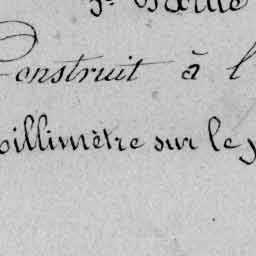 Construit à l
illimètre sur le